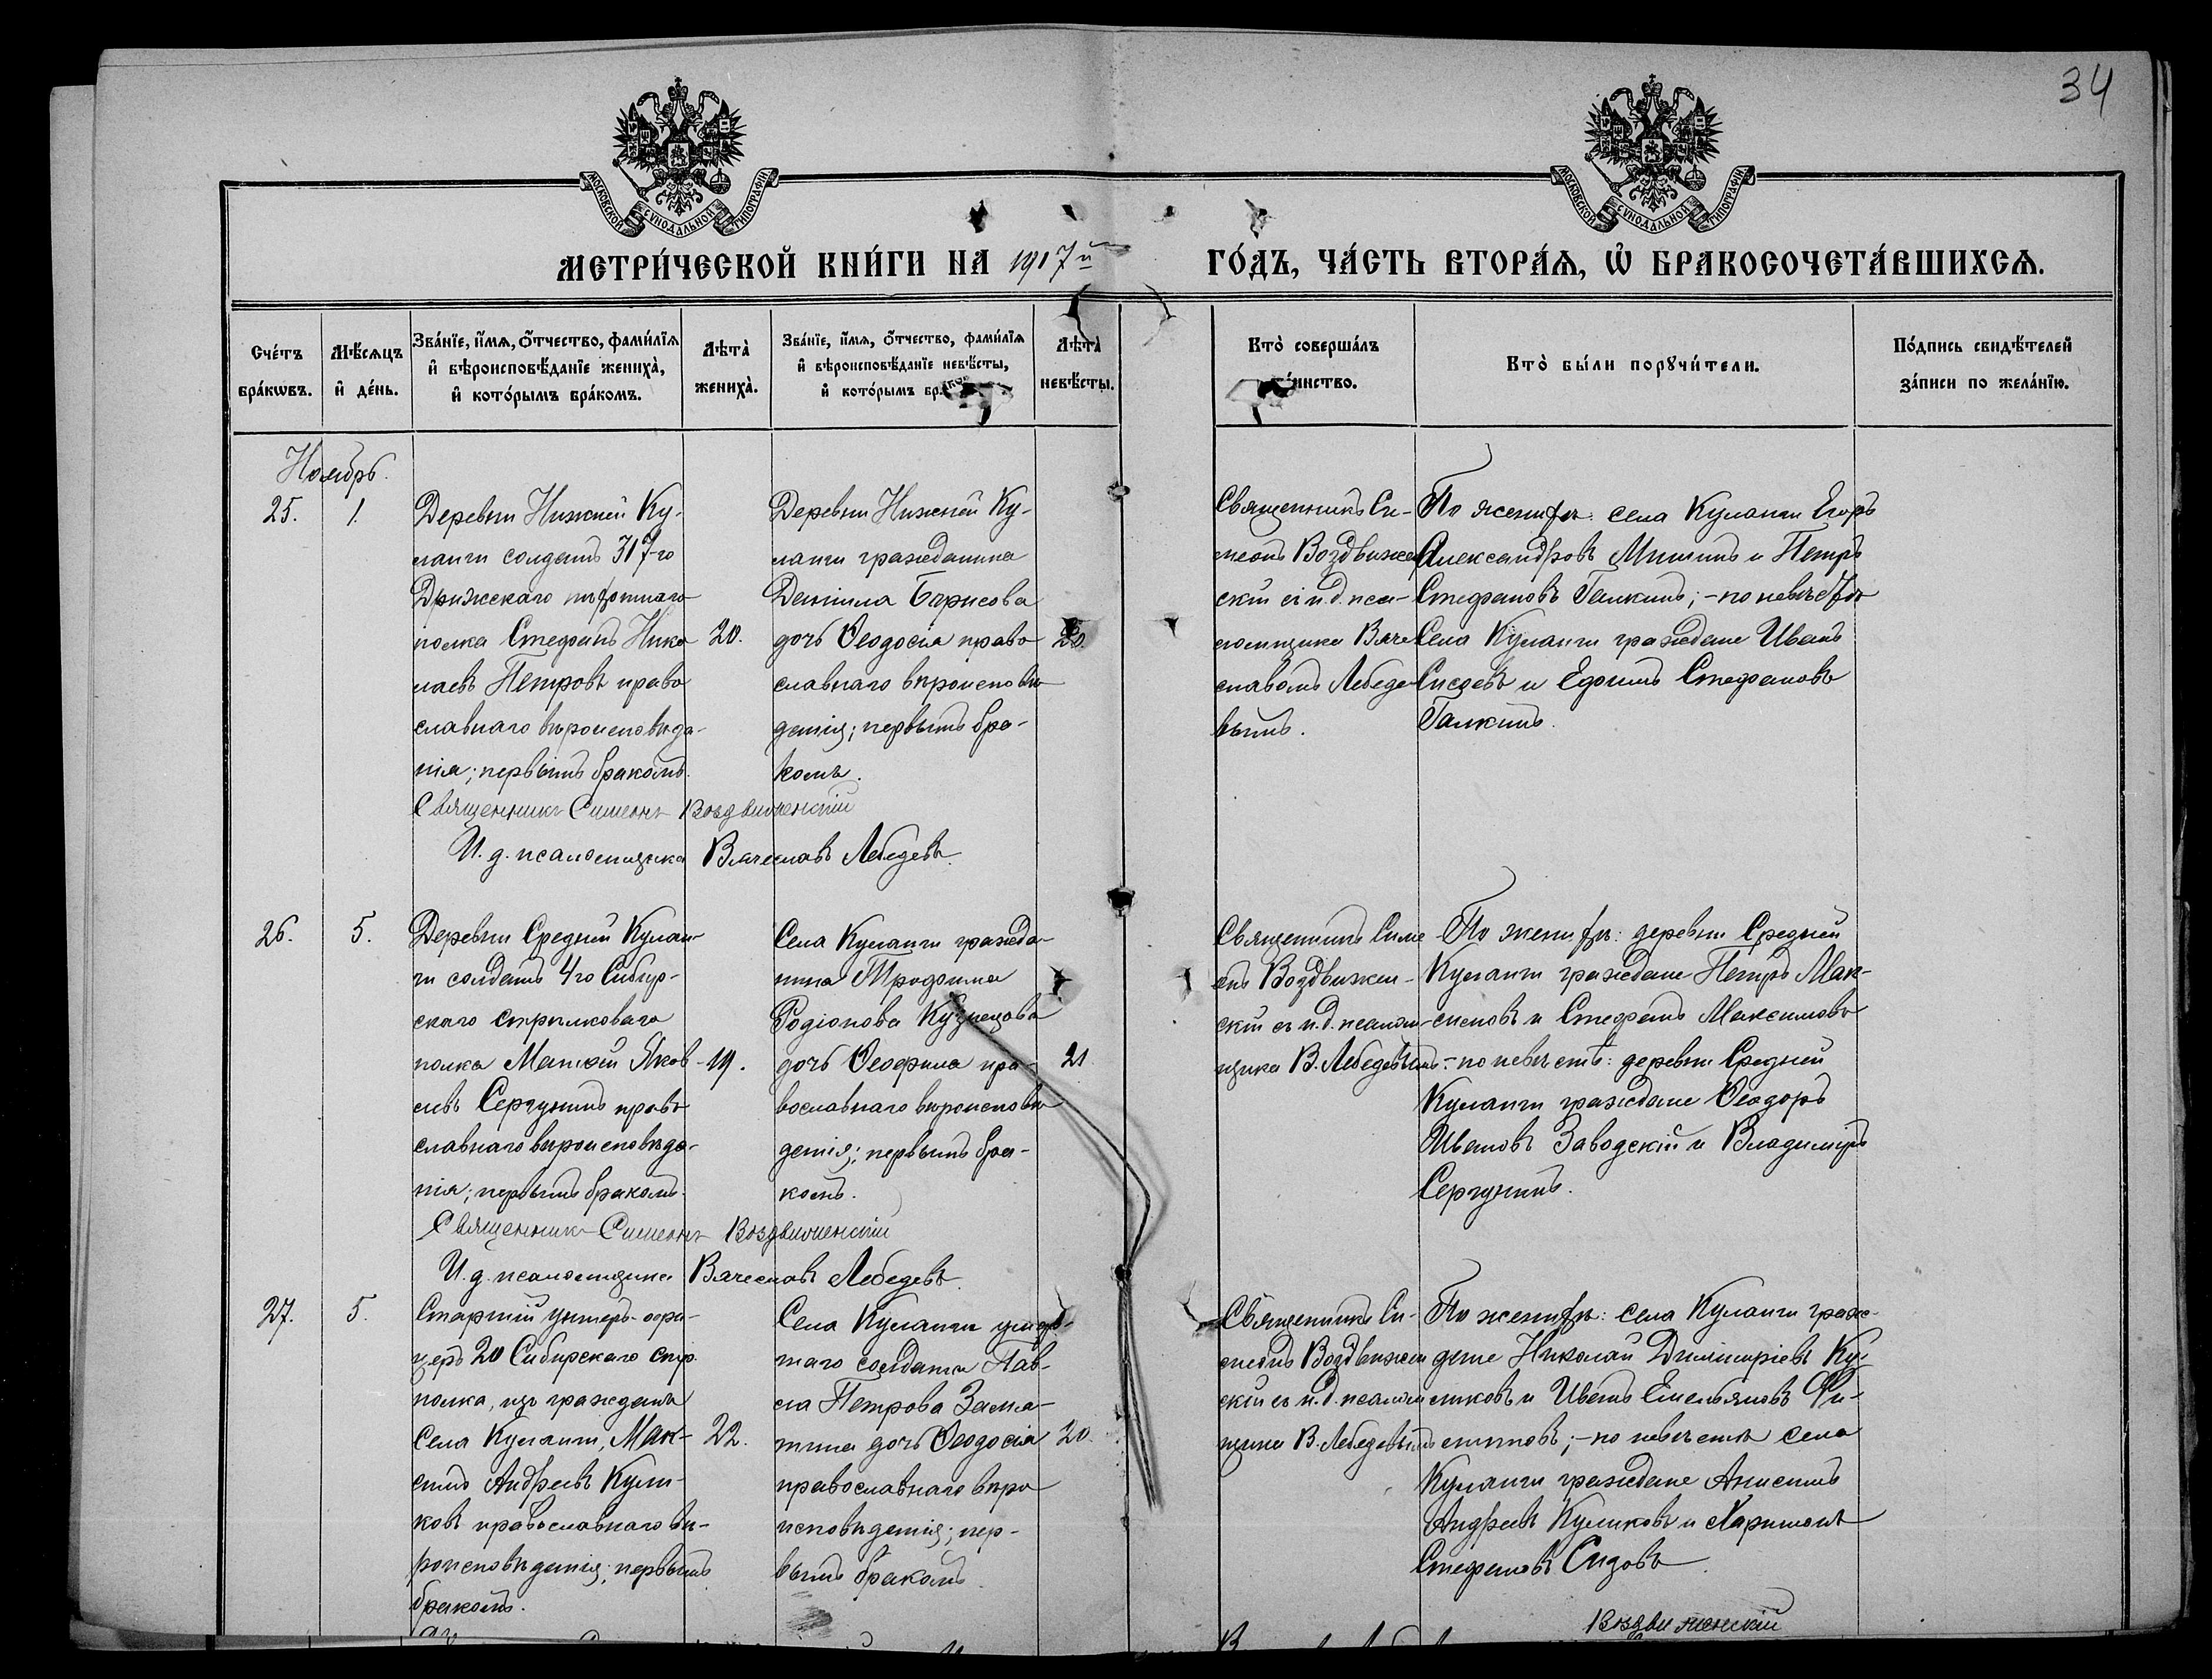 34
МОСКОВСКОЙ СѴНОДАЛЬНОЙ ТИПОГРАФІИ
МОСКОВСКОЙ СѴНОДАЛЬНОЙ ТИПОГРАФІИ
МЕТРИ́ЧЕСКОЙ КНИ́ГИ НА 1917й ГО́ДЪ, ЧА́СТЬ ВТОРА́Ѧ, Ѡ҆ БРАКОСОЧЕТА́ВШИХСѦ.
Сче́тъ
бра́кѡвъ.
Мѣ́сѧцъ
и҆ де́нь.
Зва́нїе, и҆́мѧ, ѻ҆́тчество, фами́лїѧ
и҆ вѣроисповѣ́данїе жениха̀,
и҆ кото́рымъ бра́комъ.
Лѣта̀
жениха̀.
Зва́нїе, и҆́мѧ, ѻ҆́тчество, фами́лїѧ
и҆ вѣроисповѣ́данїе невѣ́сты,
и҆ кото́рымъ
Лѣта̀
невѣ́сты.
Кто̀ соверша́лъ
Кто̀ бы́ли порꙋчи́тели.
По́дпись свидѣ́телей
за́писи по жела́нїю.
Ноябрь.
25.
1.
Деревни Нижней Ку-
ланги солдатъ 317-го
Дрижскаго пѣхотнаго
полка Стефанъ Нико
лаевъ Петровъ право
славнаго вѣроисповѣда-
нія; первымъ бракомъ.
20.
Деревни Нижней Ку-
ланги гражданина
Даніила Борисова
дочь Ѳеодосія право
славнаго вѣроисповѣ
данія; первымъ бра-
комъ.
20.
Священникъ Си-
меонъ Воздвижен
скій съ и.д. пса-
ломщика Вяче
славомъ Лебеде
вымъ.
По женихѣ: села Куланги Егоръ
Александровъ Мишинъ и Петръ
Стефановъ Галкинъ; - по невѣстѣ
Села Куланги граждане Иванъ
Сизовъ и Ефимъ Стефановъ
Галкинъ.
Священникъ Симеонъ Воздвиженскій
И. д. псаломщика Вячеславъ Лебедевъ.
26.
5.
Деревни Средней Кулан-
ги солдатъ 4го Сибир-
скаго стрѣлковаго
полка Матѳій Яков-
левъ Сергунинъ право
славнаго вѣроисповѣда-
нія; первымъ бракомъ.
19.
Села Куланги гражда-
нина Трофима
Родіонова Кузнецова
дочь Ѳеофила пра-
вославнаго вѣроисповѣ
данія; первымъ бра-
комъ.
21
Священникъ Симе
онъ Воздвижен-
скій съ и.д. псалом-
щика В. Лебедевымъ
По женихѣ: деревни Средней
Куланги граждане Петръ Мак-
симовъ и Стефанъ Максимовъ
- по невѣстѣ: деревни Средней
Куланги граждане Ѳеодоръ
Ивановъ Заводскій и Владиміръ
Сергунинъ.
Священникъ Симеонъ Воздвиженскій
И. д. псаломщика Вячеславъ Лебедевъ.
27.
5.
Старшій унтеръ-офи-
церъ 20 Сибирскаго стр.
полка, изъ гражданъ
Села Куланги, Мак-
симъ Андреевъ Кули-
ковъ православнаго вѣ-
роисповѣданія; первымъ
бракомъ.
22.
Села Куланги умер-
шаго солдата Пав-
ла Петрова Замя-
тина дочь Ѳеодосія
православнаго вѣро
исповѣданія; пер-
вымъ бракомъ.
20.
Священникъ Си-
меонъ Воздвижен
скій съ и.д. псалом
щика В. Лебедевымъ
По женихѣ: села Куланги граж-
дане Николай Димитріевъ Ку-
ликовъ и Иванъ Емельяновъ Фи-
липповъ; - по невѣстѣ села
Куланги граждане Анисимъ
Андреевъ Куликовъ и Харитонъ
Стефановъ Сизовъ.
Воздвиженскій